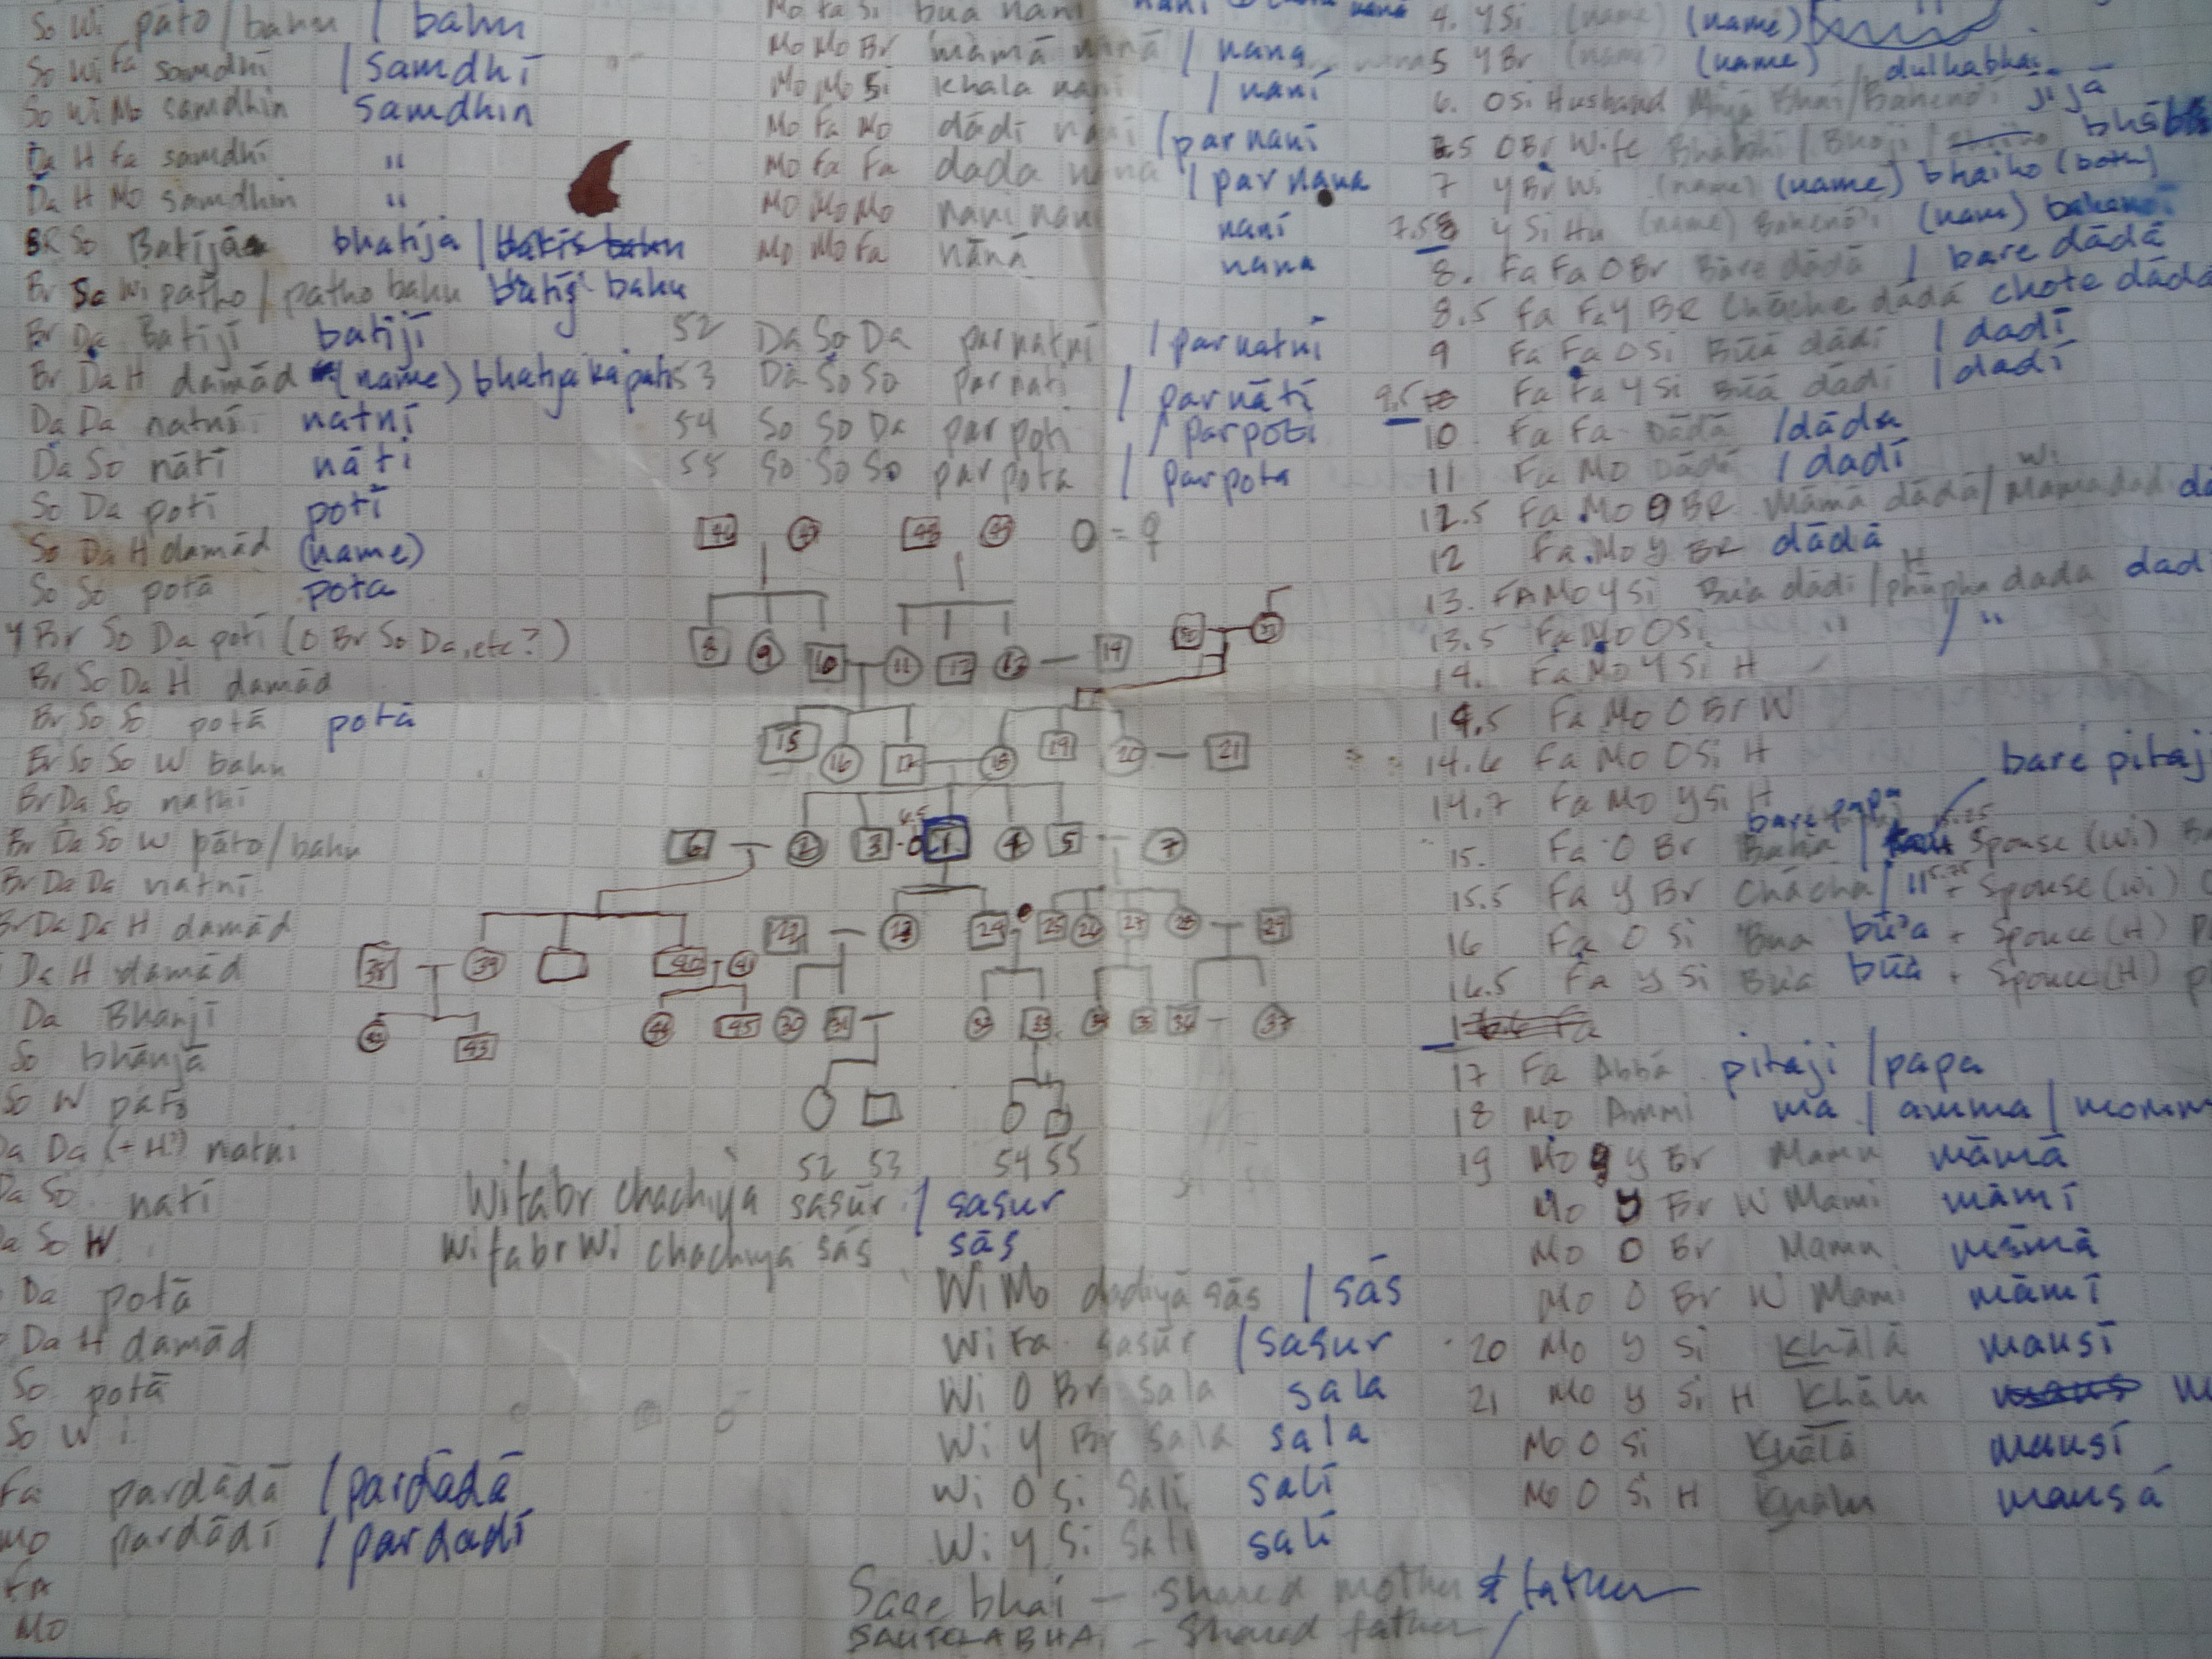 So Wi pāto/bahu / bahu
So Wi Fa samdhī / samdhī
So Wi Mo samdhin samdhin
Da H Fa samdhī "
Da H Mo samdhin "
BR So Batījā bhatija /
Br So Wi patho / patho bahu batij bahu
Br Da Batījī batījī
Br Da H damād (name) bhatija ka pati
Da Da natnī natnī
Da So nātī nāti
So Da potī potī
So Da H damād (name)
So So potā pota
Y Br So Da potī (O Br So Da, etc?)
Br So Da H damād
Br So So potā potā
Br So So W bahu
Br Da So
Br Da So W pāto/bahu
Br Da Da natnī
Br Da Da H damād
Da H damād
Da Bhanjī
So bhānjā
So W pāto
Da Da (+ H?) natni
Da So natī
Da So W
Da potā
Da H damād
So potā
So W i
Fa pardādā / pardādā
Mo pardādī / pardadī
FA
Mo
Mo Fa Si bua nani
Mo Mo Br māmā nānā / nana
Mo Mo Si khala nani / nanī
Mo Fa Mo dādī nānī / parnanī
Mo Fa Fa dada nana / parnana
Mo Mo Mo nani nani nani
Mo Mo Fa nānā nana
52 Da So Da parnatnī / parnatnī
53 Da So So parnati / parnātī
54 So So Da parpoti / parpoti
55 So So So parpota / parpota
46 47 48 49 O = ♀
8 9 10 11 12 13 14 50 51
15 16 17 18 19 20 21
6 2 3 6.5 1 4 5 7
22 23 24 25 26 27 28 29
38 39 40 41
42 43 44 45 30 31 32 33 34 35 36 37
52 53 54 55
Wifabr chachiya sasūr / sasur
Wifabrwi chachiya sās sās
Wi Mo dadiyā sās / sās
Wi Fa sasūr / sasur
Wi O Br sala sala
Wi Y Br sala sala
Wi O Si Sali salī
Wi Y Si Sali salī
Sage bhai – shared mother & father
SAUTELA BHAI – Shared father
4. Y Si (name) (name)
5 Y Br (name) (name)
dulhabhai
6. O Si Husband Bhai/Bahenōi jījā
6.5 O Br Wife Bhabhi / Bhoji /
7 Y Br Wi (name) (name) bhaiho (both)
7.5 Y Si Hu (name) Bahenōi (name) bahenoi
8. Fa Fa O Br Bare dādā / bare dādā
8.5 Fa Fa Y BR Chāche dādā chote dādā
9 Fa Fa O Si Būā dādī / dadī
9.5 Fa Fa Y Si Būā dādī / dadī
10. Fa Fa Dādā / dāda
11 Fa Mo Dādī / dadī
Wi
12.5 Fa Mo O BR Māmā dādā /
12 Fa Mo Y BR dādā
H
13. FA Mo Y Si Būa dādī / phupha dada
13.5 Fa Mo O Si " / "
14. Fa Mo Y Si H
14.5 Fa Mo O Br W
14.6 Fa Mo O Si H
14.7 Fa Mo Y Si H
bare pitaji
bare papa
15. Fa O Br / Spouse (Wi)
15.5 Fa Y Br Chācha / + Spouse (wi)
16 Fa O Si Bua bū'a + Spouce (H)
16.5 Fa Y Si Bua būā + Spouce (H)
17 Fa Abbā pitaji / papa
18 Mo Ammi ma / amma /
19 Mo Y Br Mamu māmā
Mo Y Br W Mami māmī
Mo O Br Mamu māmā
Mo O Br W Mami māmī
20 Mo Y Si Khālā mausī
21 Mo Y Si H Khālu
Mo O Si Khālā mausī
Mo O Si H Khālu mausā